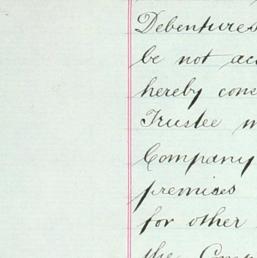 Debentures
be not acc
hereby cons
Trustee m
Company
premises
for other
the Comp